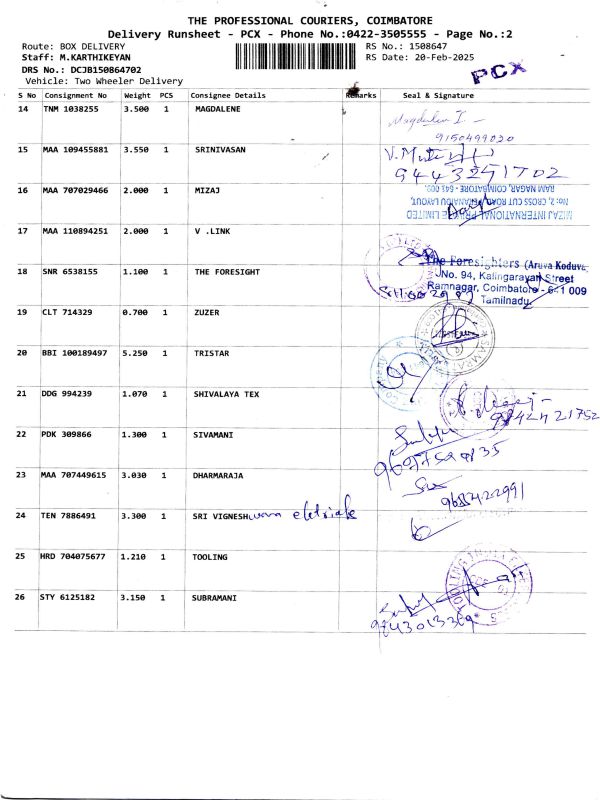 THE PROFESSIONAL COURIERS, COIMBATORE
Delivery Runsheet - PCX - Phone No.:0422-3505555 - Page No.:2
Route: BOX DELIVERY
RS No.: 1508647
Staff: M.KARTHIKEYAN
RS Date: 20-Feb-2025
DRS No.: DCJB150864702
PCX
Vehicle: Two Wheeler Delivery
S No Consignment No Weight PCS Consignee Details Remarks Seal & Signature
14 TNM 1038255 3.500 1 MAGDALENE
9150499020
15 MAA 109455881 3.550 1 SRINIVASAN
9443251702
16 MAA 707029466 2.000 1 MIZAJ
MIZAJ INTERNATIONAL PRIVATE LIMITED
RAM NAGAR, COIMBATORE - 641 009.
17 MAA 110894251 2.000 1 V .LINK
18 SNR 6538155 1.100 1 THE FORESIGHT
The Foresighters (Aruva Koduva
No. 94, Kalingarayan Street
Ramnagar, Coimbatore - 641 009
Tamilnadu
19 CLT 714329 0.700 1 ZUZER
20 BBI 100189497 5.250 1 TRISTAR
21 DDG 994239 1.070 1 SHIVALAYA TEX
22 PDK 309866 1.300 1 SIVAMANI
23 MAA 707449615 3.030 1 DHARMARAJA
24 TEN 7886491 3.300 1 SRI VIGNESH
25 HRD 704075677 1.210 1 TOOLING
26 STY 6125182 3.150 1 SUBRAMANI